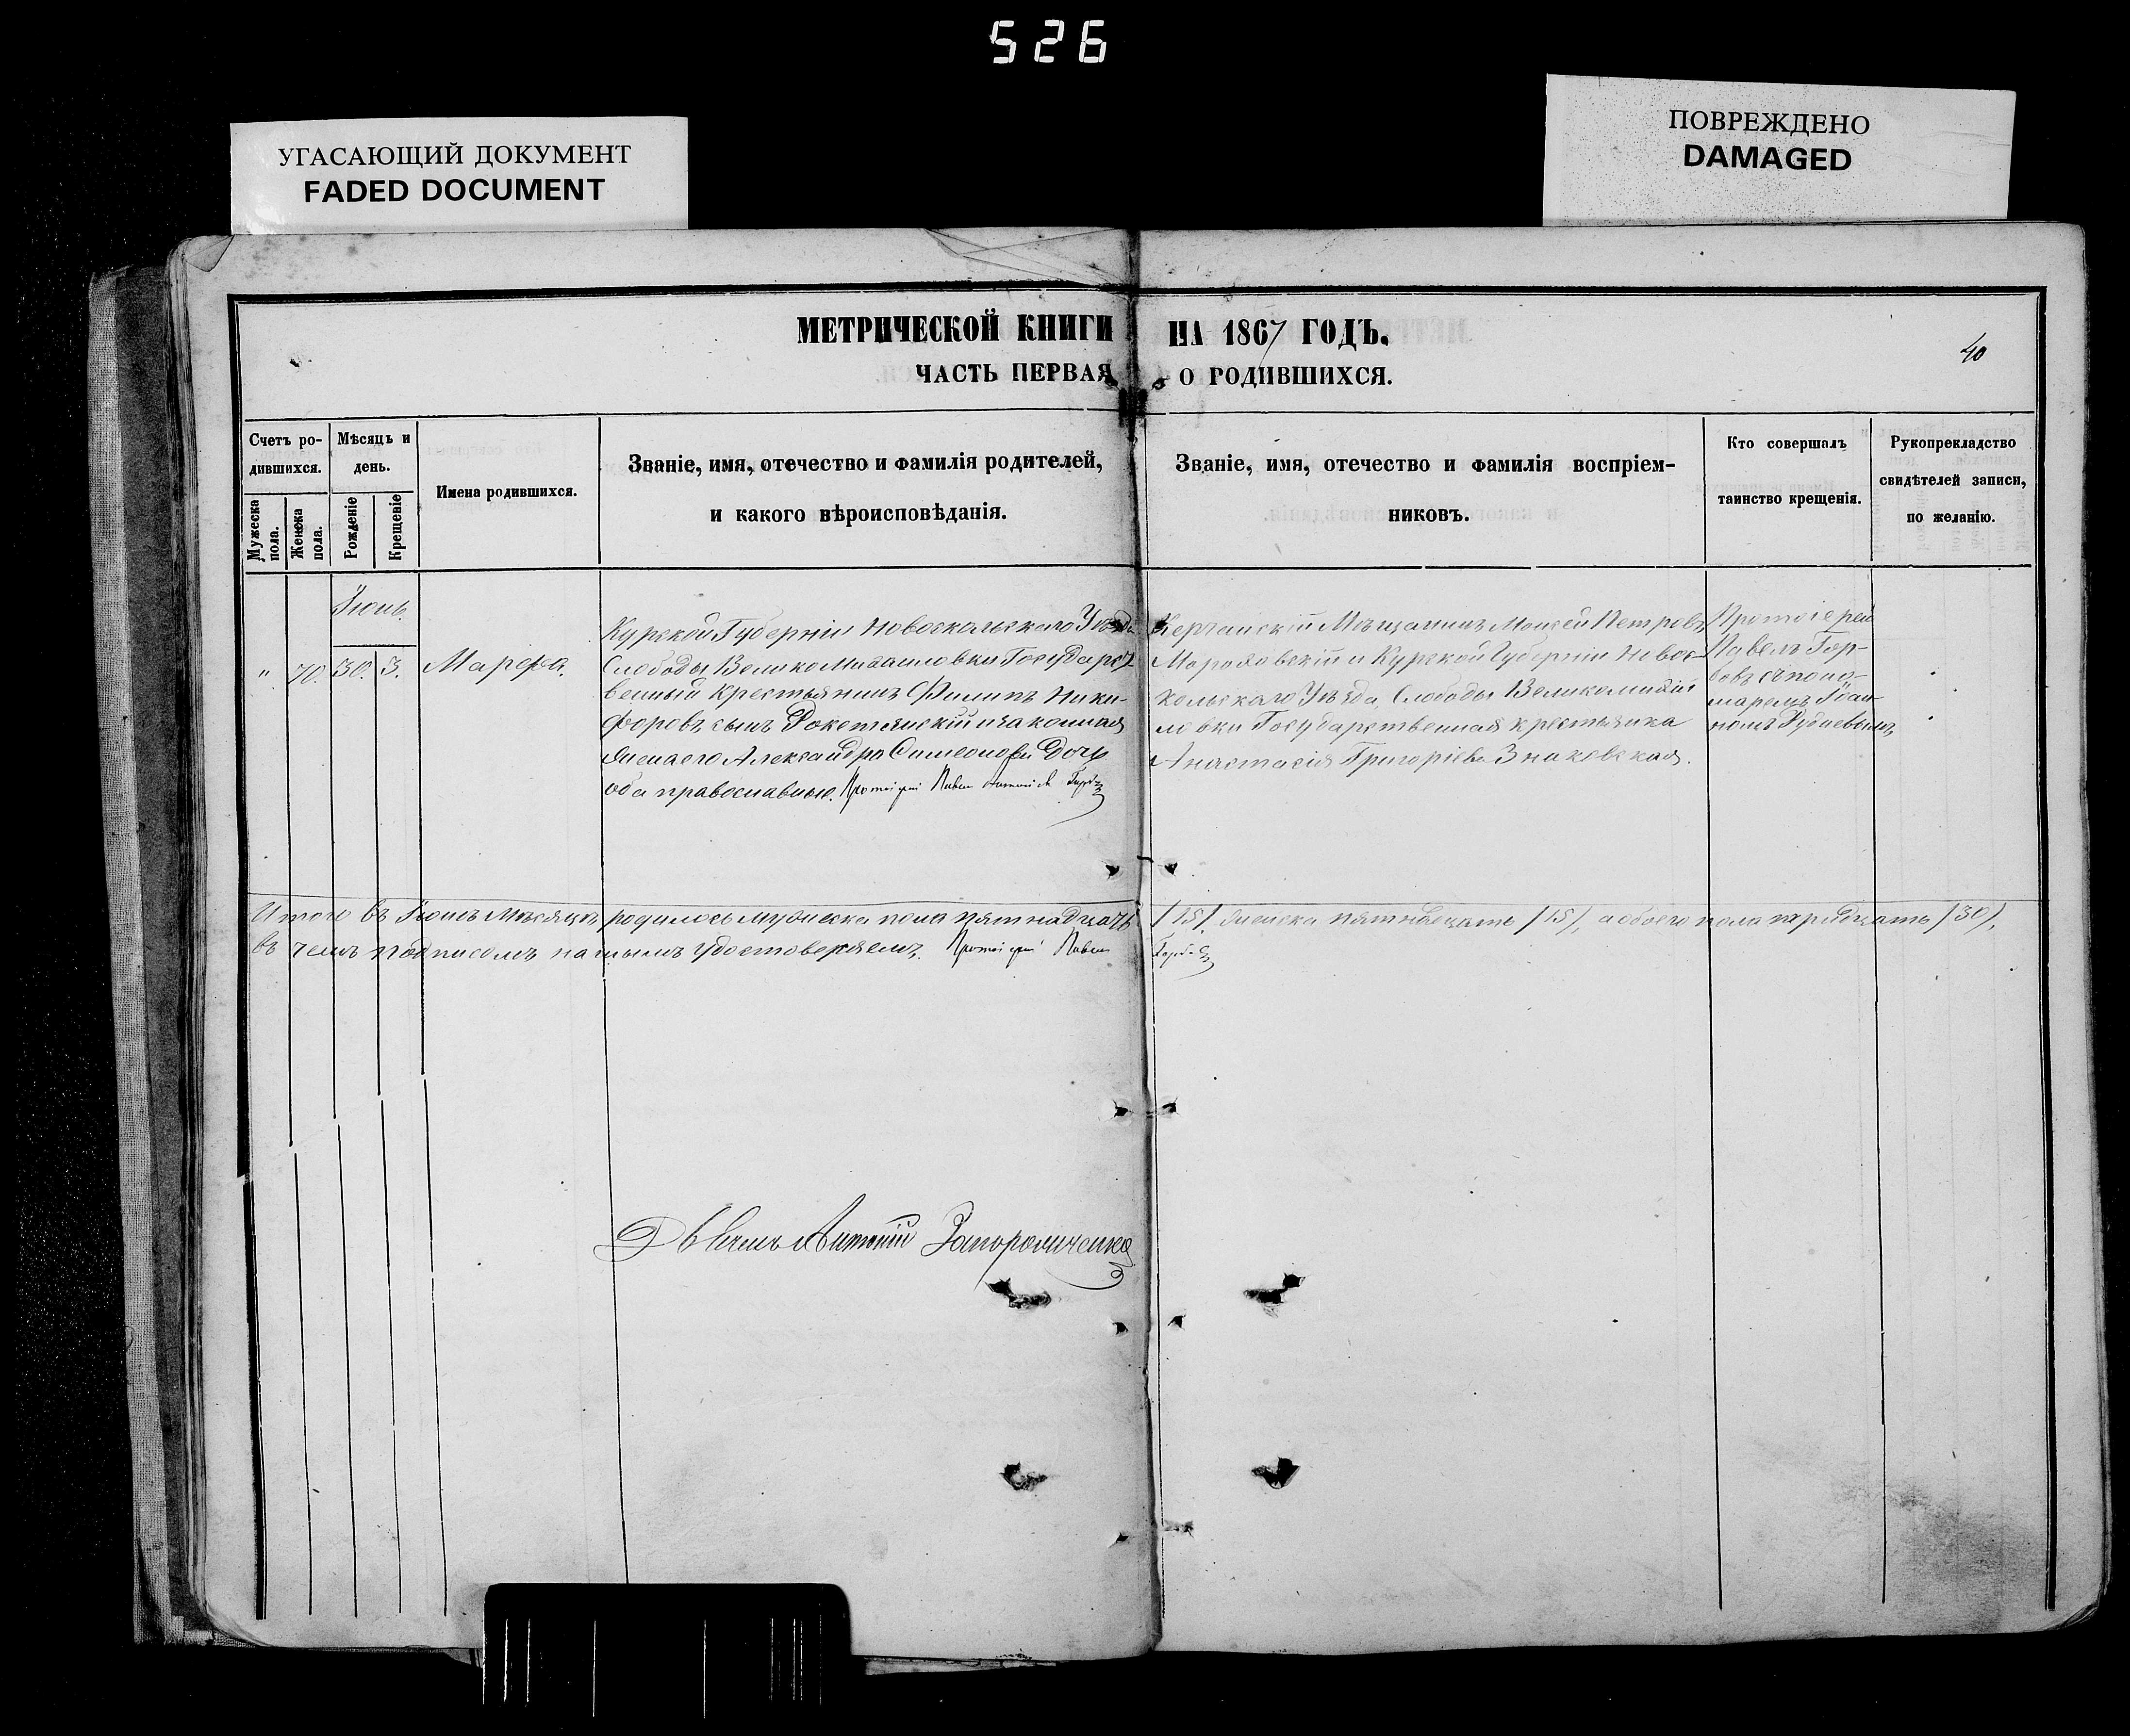 526
УГАСАЮЩИЙ ДОКУМЕНТ
FADED DOCUMENT
ПОВРЕЖДЕНО
DAMAGED
МЕТРИЧЕСКОЙ КНИГИ НА 1867 ГОДЪ.
40
ЧАСТЬ ПЕРВАЯ О РОДИВШИХСЯ.
Счетъ ро-
дившихся.
Мужеска пола.
Женска пола.
Мѣсяцъ и
день.
Рожденіе
Крещеніе
Имена родившихся.
Званіе, имя, отечество и фамилія родителей,
и какого вѣроисповѣданія.
Званіе, имя, отечество и фамилія воспріем-
никовъ.
Кто совершалъ
таинство крещенія.
Рукоприкладство
свидѣтелей записи,
по желанію.
Іюнь.
" 70. 30. 3. Марфа.
Курской Губерніи Новоскольскаго Уѣзда
Слободы Великомихайловки Государст
венный Крестьянинъ Филипъ Ники-
форовъ сынъ и законная
жена его Александра Симеонова Дочь
оба православные. Протоіерей Павел
Керчанскій Мѣщанинъ Моисей Петровъ
и Курской Губерніи Новос-
кольскаго Уѣзда, Слободы Великомихай
ловки Государственная крестьянка
Анастасія Григоріева
Протоіерей
Павелъ Гор-
бовъ съ поно-
маремъ Іоан-
номъ
Итого въ Іюнѣ Мѣсяцѣ родилось мужеска пола пятнадцать /15/. женска пятнадцать /15/, а обоего пола тридцать /30/,
въ чемъ подписомъ нашимъ удостоверяемъ. Протоіерей Павел
Антоній Запорожченко